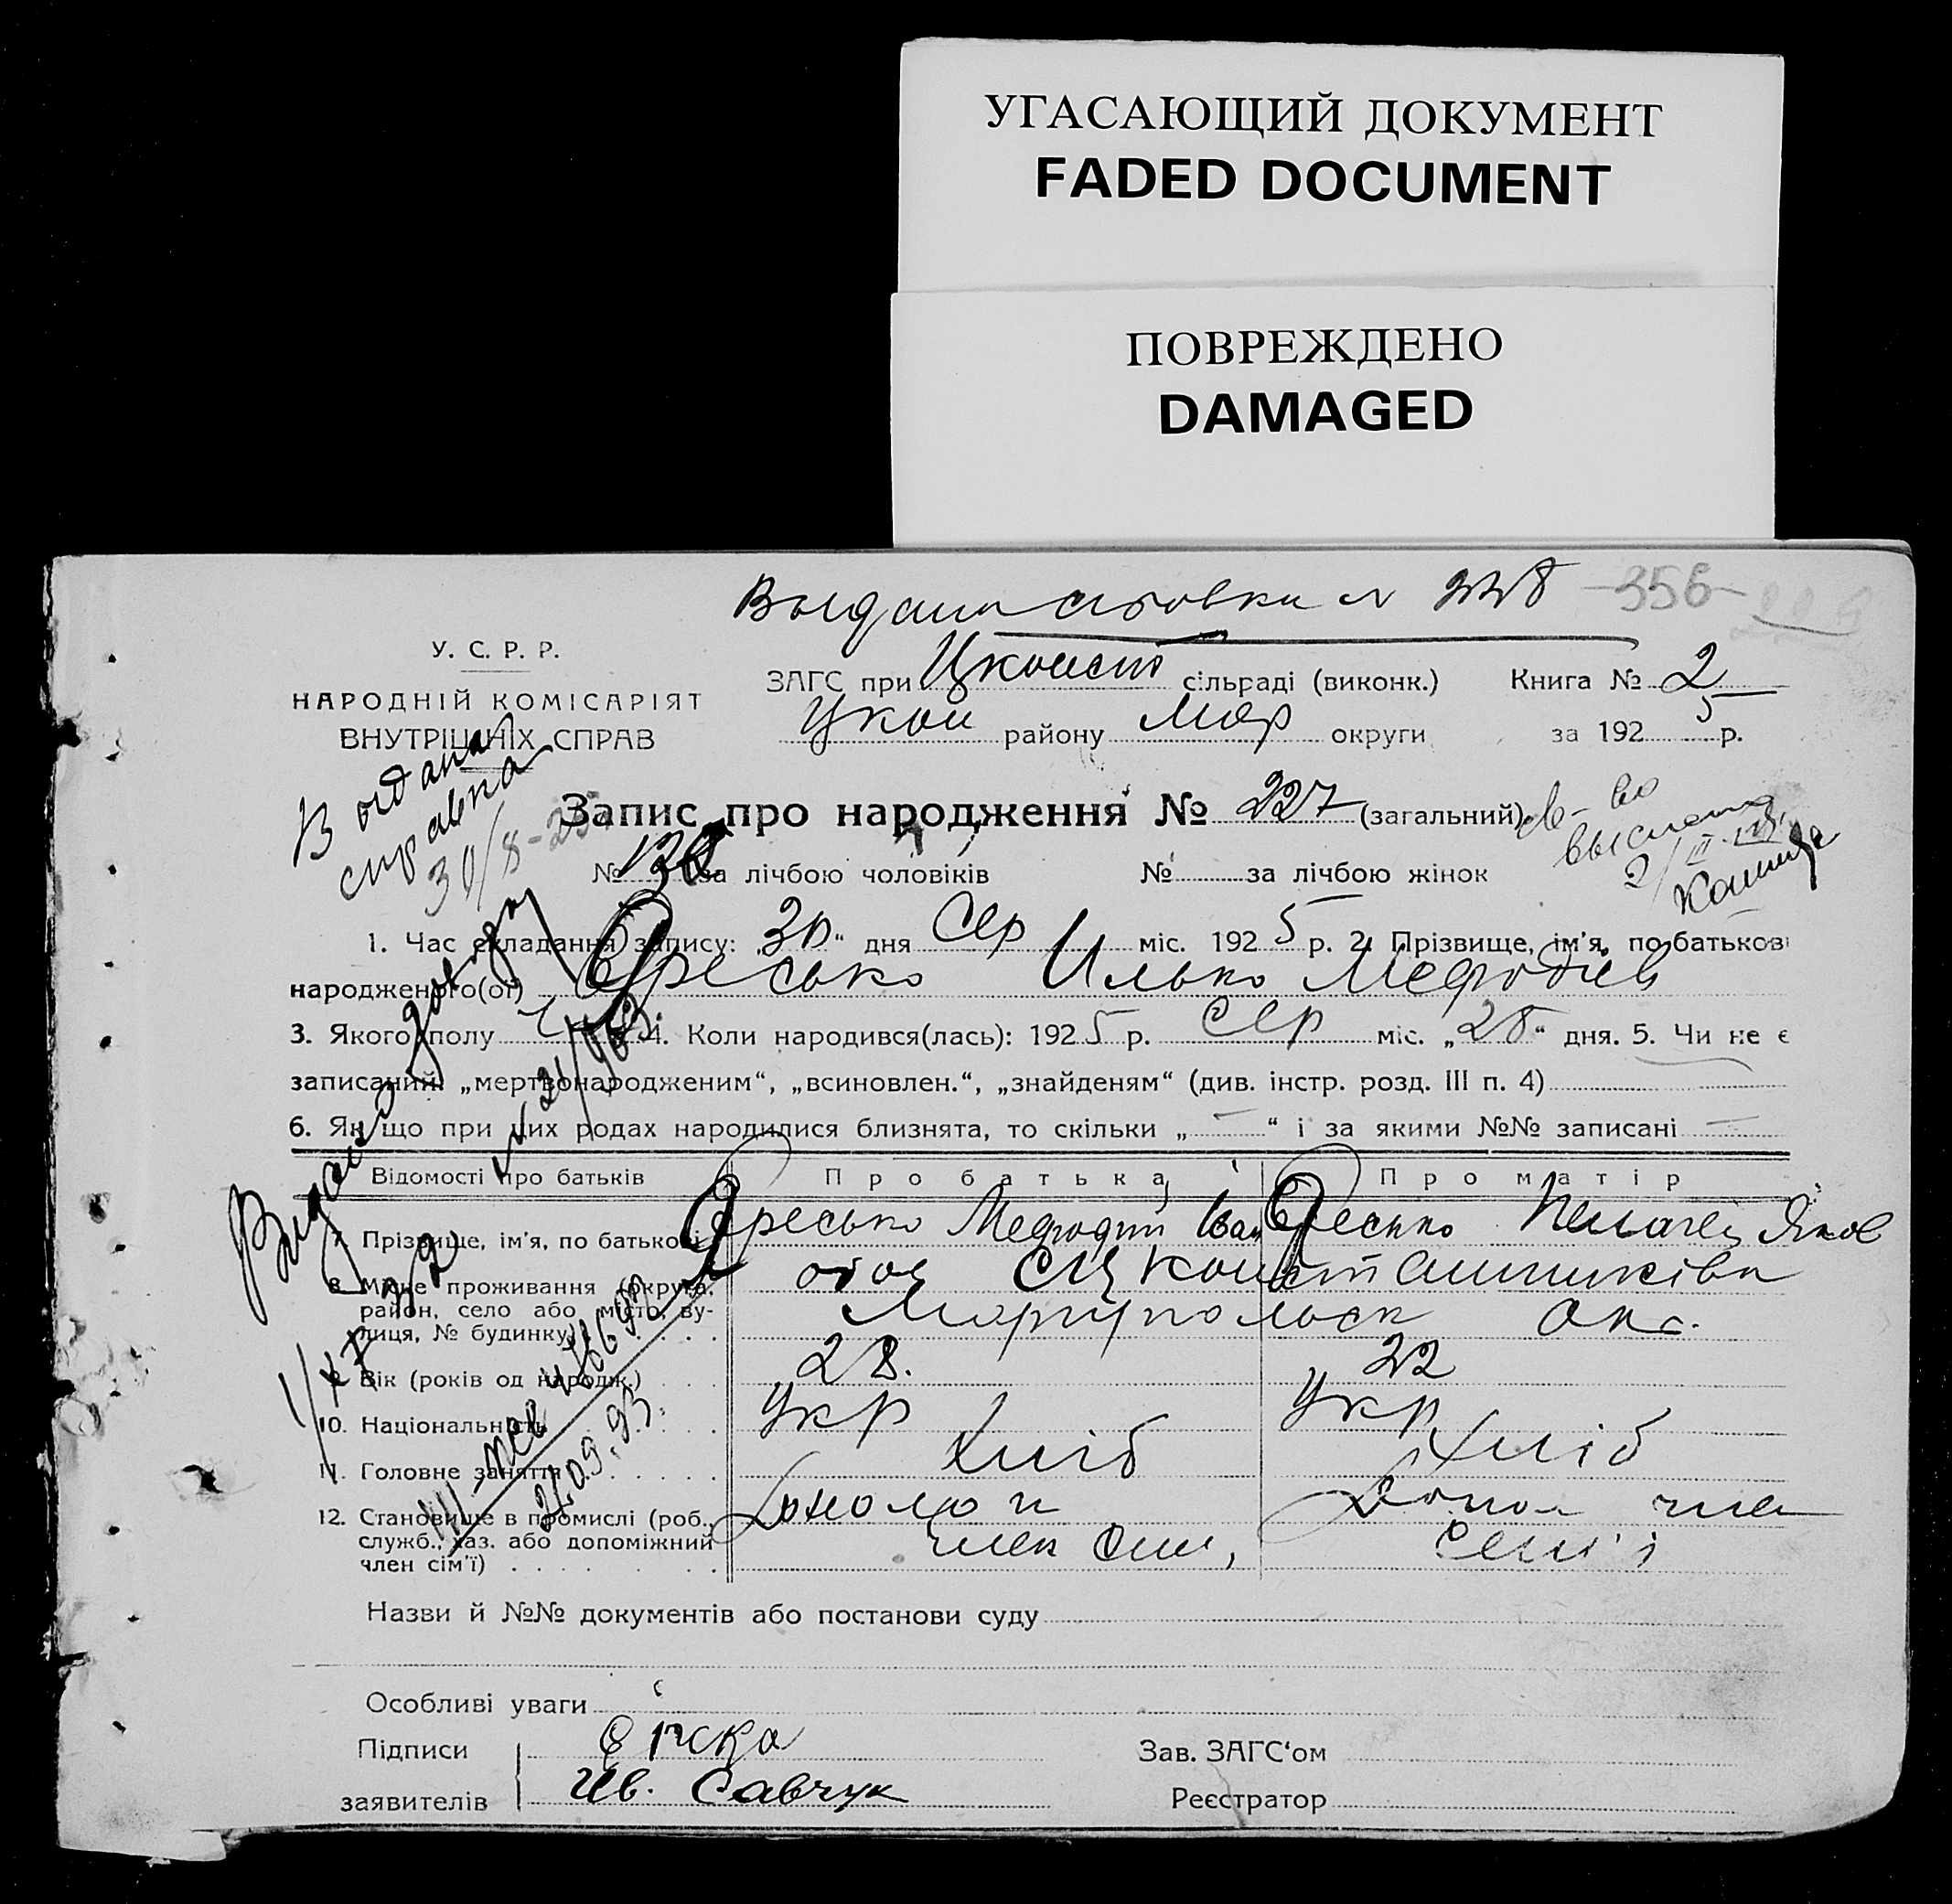 УГАСАЮЩИЙ ДОКУМЕНТ
FADED DOCUMENT
ПОВРЕЖДЕНО
DAMAGED
Выдана № 228 -356-
У. С. Р. Р.
НАРОДНІЙ КОМІСАРІЯТ
ВНУТРІШНІХ СПРАВ
ЗАГС при Цконст сільраді (виконк.) Книга № 2
Цкон району Мар округи за 1925 р.
Выдана
справка
30/8-25
Запис про народження № 227 (загальний)
№ 130 за лічбою чоловіків № за лічбою жінок
св-во
выслано
2/III
1. Час складання запису: „30“ дня Сер міс. 1925 р. 2. Прізвище, ім'я, по батькові
народженого(ої) Єресько Илько Мефодіев
3. Якого полу Ч 4. Коли народився(лась): 1925 р. Сер міс. „28“ дня. 5. Чи не є
записаний: „мертвонародженим“, „всиновлен.“, „знайденям“ (див. інстр. розд. III п. 4)
6. Як що при цих родах народилися близнята, то скільки „—“ і за якими №№ записані —
Відомості про батьків Про батька Про матір
7. Прізвище, ім'я, по батькові Єресько Мефодий Іван Єресько Пелагея Яков
8. Місце проживання (округа, обоє с Цконстантинівка
район, село або місто, ву- Маріупольск окр.
лиця, № будинку)
9. Вік (років од народж.) 28. 22
10. Національність Укр Укр
11. Головне заняття Хліб Хліб
12. Становище в промислі (роб., Допом Допом член
служб., хаз. або допоміжний член сім'ї
член сім'ї)
21.09.93.
Назви й №№ документів або постанови суду
Особливі уваги
Підписи Зав. ЗАГС'ом
заявителів Ив. Савчук Реєстратор